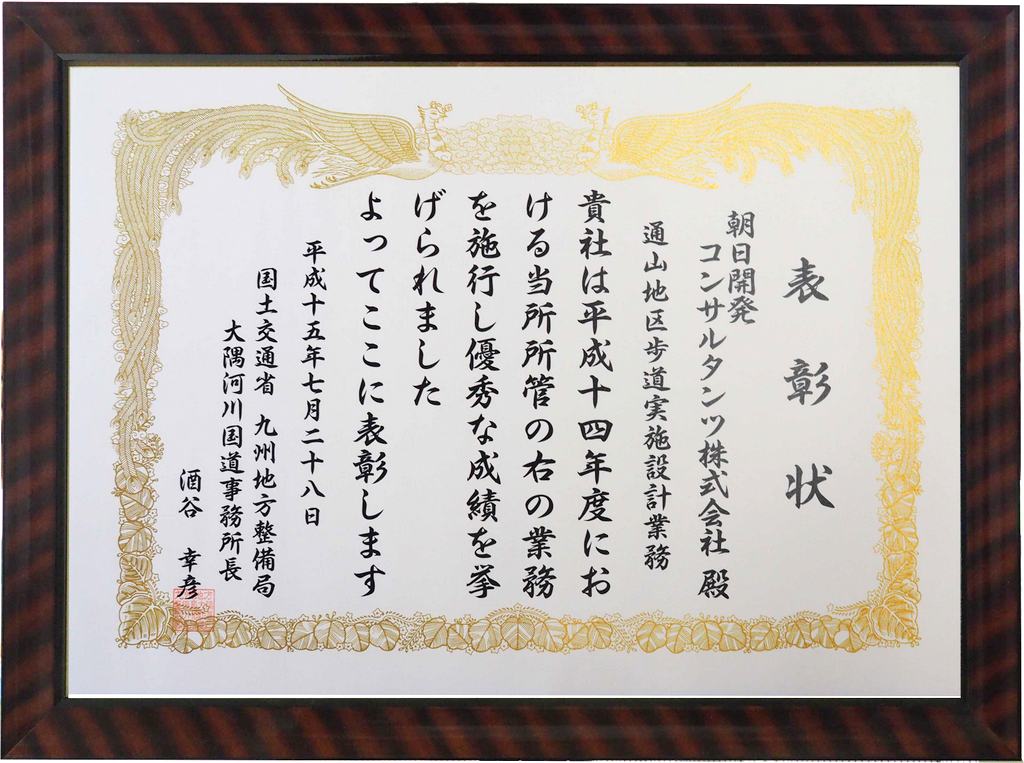 表彰状
朝日開発
コンサルタンツ株式会社 殿
通山地区歩道実施設計業務
貴社は平成十四年度にお
ける当所所管の右の業務
を施行し優秀な成績を挙
げられました
よってここに表彰します
平成十五年七月二十八日
国土交通省 九州地方整備局
大隅河川国道事務所長
酒谷 幸彦